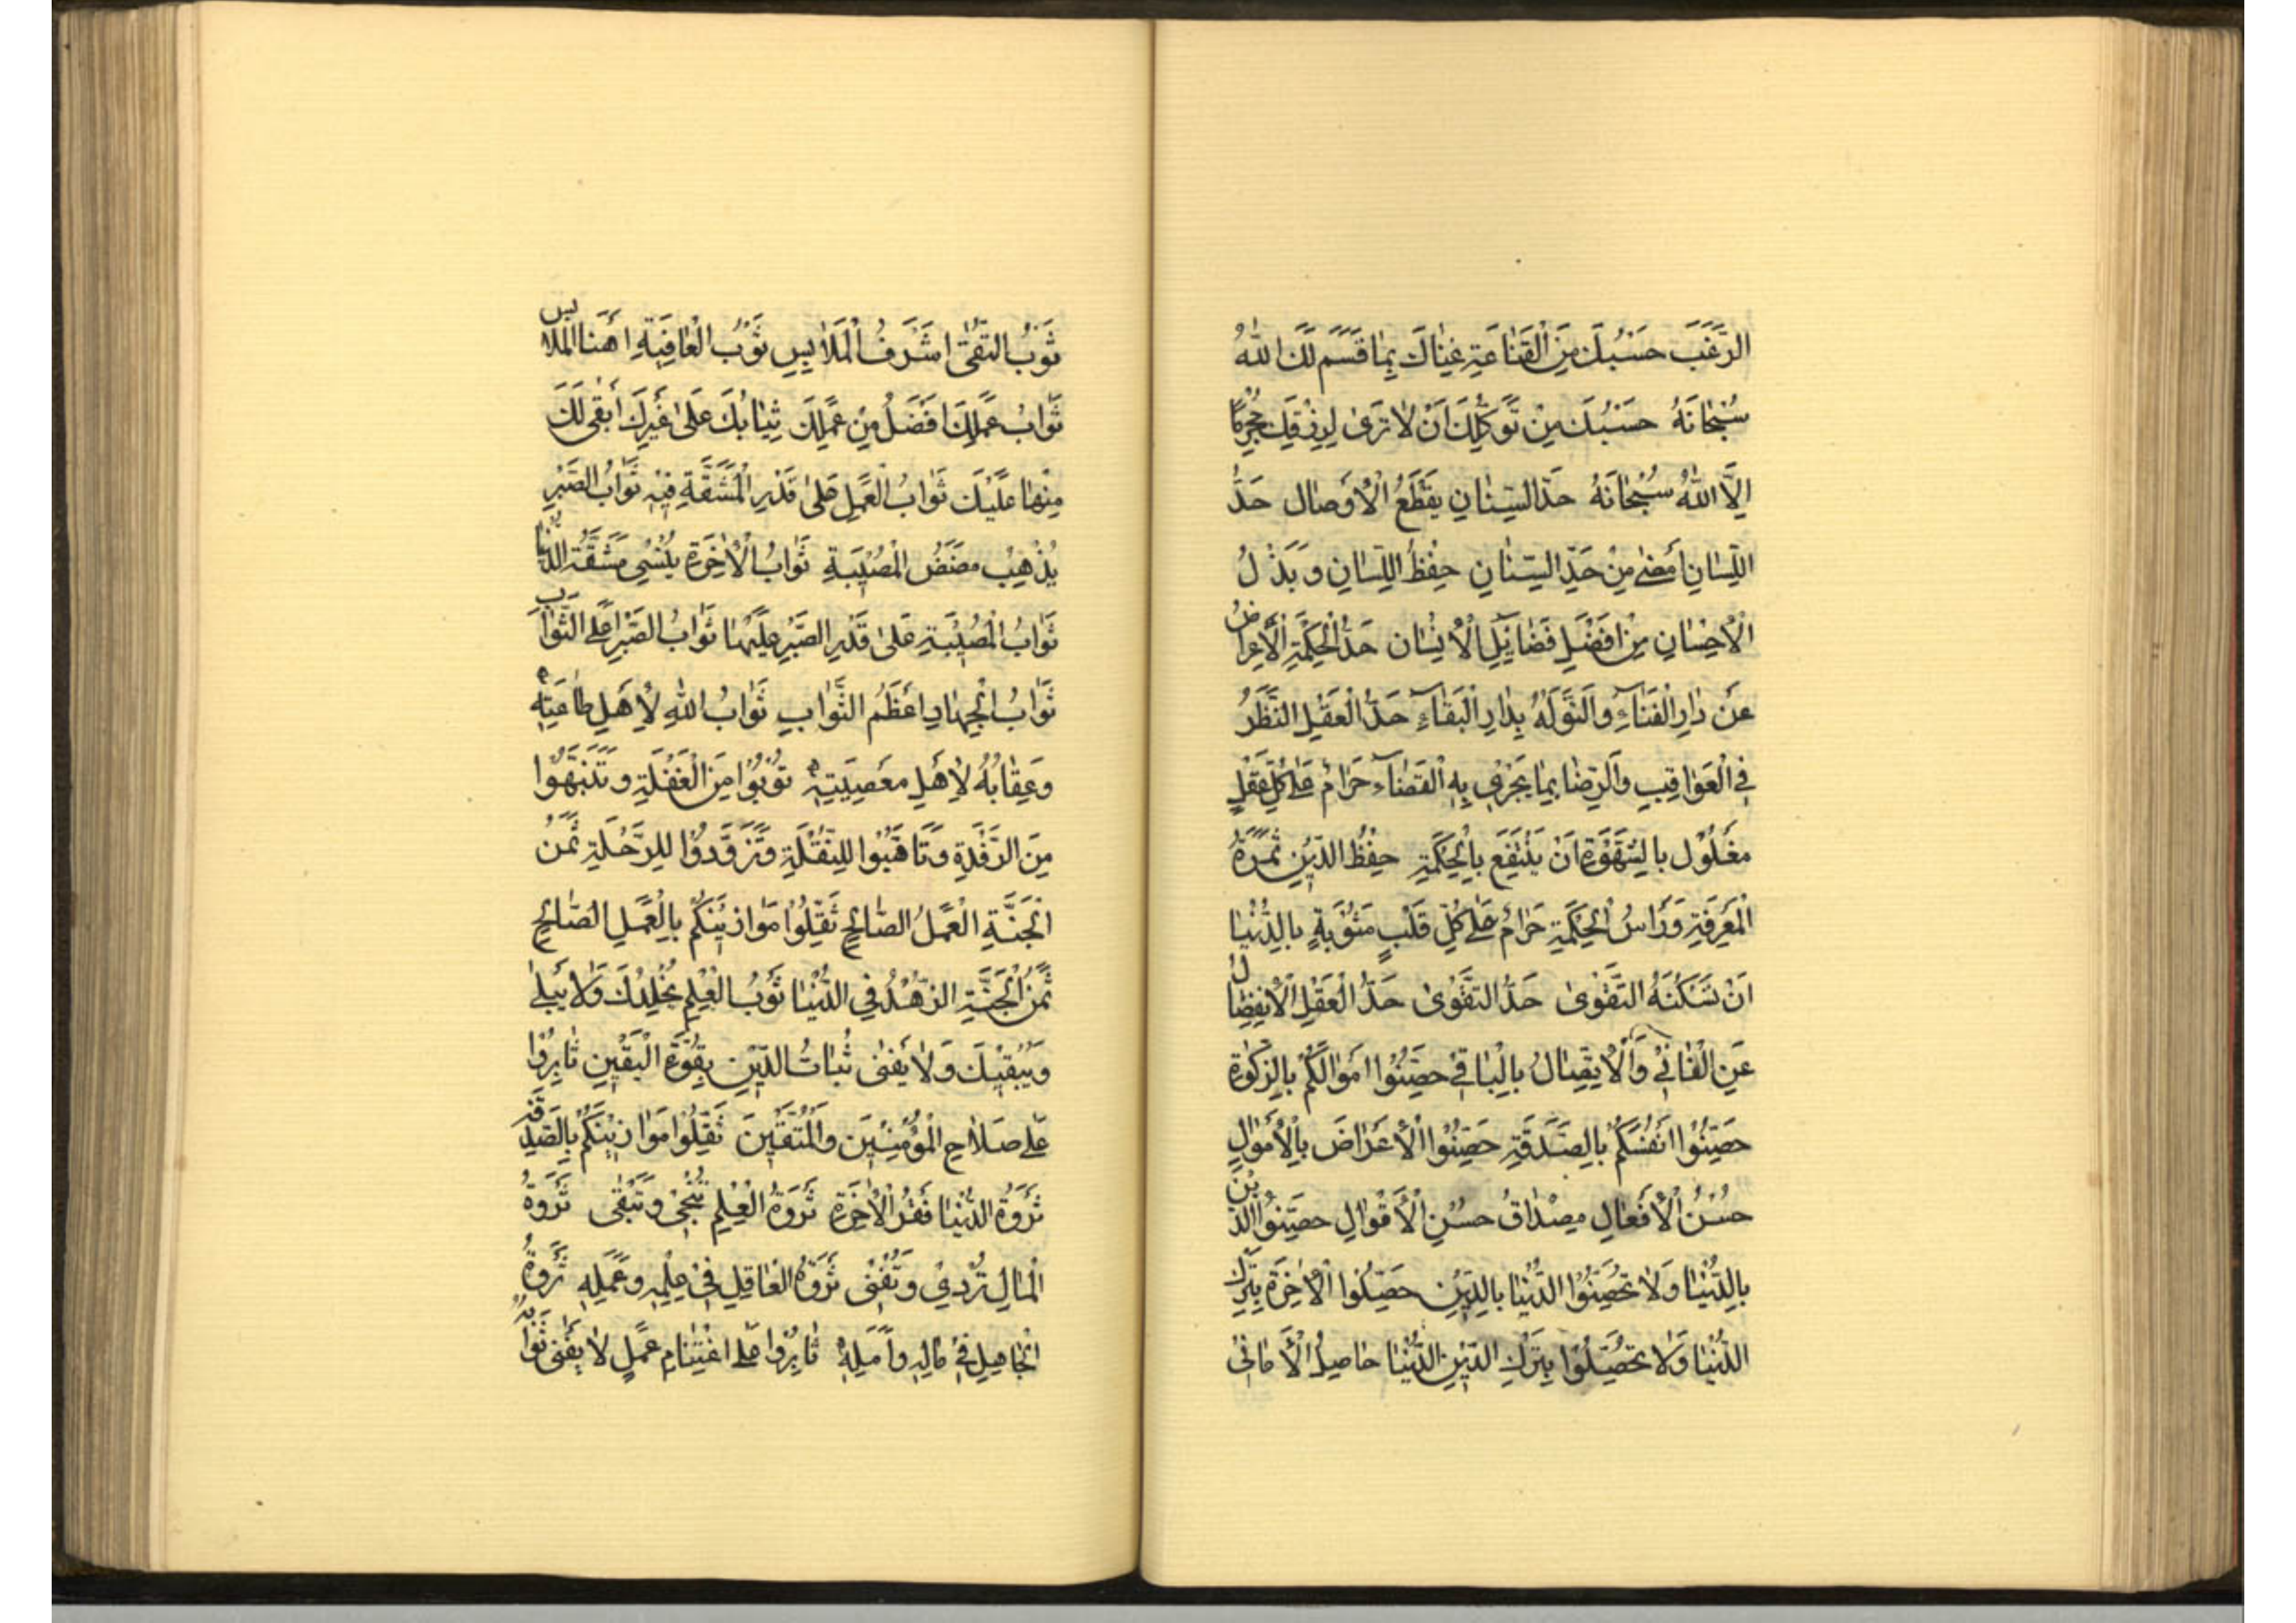 الرَّغَبَ حَسْبُكَ مِنَ الْقَنَاعَةِ غِنَاكَ بِمَا قَسَّمَ لَكَ اللهُ
سُبْحَانَهُ حَسْبُكَ مِنْ تَوَكُّلِكَ اَنْ لَا تَرَى لِرِزْقِكَ مُجْرِيًا
اِلَّا اللهُ سُبْحَانَهُ حَدُّ السِّنَانِ يَقْطَعُ الْاَوْصَالَ حَدُّ
اللِّسَانِ اَمْضٰى مِنْ حَدِّ السِّنَانِ حِفْظُ اللِّسَانِ وَ بَذْلُ
الْاِحْسَانِ مِنْ اَفْضَلِ فَضَائِلِ الْاِنْسَانِ حَدُّ الْحِكْمَةِ الْاِعْرَاضُ
عَنْ دَارِ الْفَنَاءِ وَالتَّوَلُّهُ بِدَارِ الْبَقَاءِ حَدُّ الْعَقْلِ النَّظَرُ
فِي الْعَوَاقِبِ وَالرِّضَا بِمَا يَجْرِي بِهِ الْقَضَاءُ حَرَامٌ عَلٰى كُلِّ عَقْلٍ
مَغْلُولٍ بِالشَّهْوَةِ اَنْ يَنْتَفِعَ بِالْحِكْمَةِ حِفْظُ الدِّيْنِ ثَمَرَةُ
الْمَعْرِفَةِ وَرَاْسُ الْحِكْمَةِ حَرَامٌ عَلٰى كُلِّ قَلْبٍ مَثُوْبَةٍ بِالدُّنْيَا
اَنْ تَسْكُنَهُ التَّقْوٰى حَدُّ التَّقْوٰى حَدُّ الْعَقْلِ الْاِنْفِصَالُ
عَنِ الْفَانِيْ وَالْاِتِّصَالُ بِالْبَاقِيْ حَصِّنُوْا اَمْوَالَكُمْ بِالزَّكٰوةِ
حَصِّنُوْا اَنْفُسَكُمْ بِالصَّدَقَةِ حَصِّنُوْا الْاَعْرَاضَ بِالْاَمْوَالِ
حُسْنُ الْاَفْعَالِ مِصْدَاقُ حُسْنِ الْاَقْوَالِ حَصِّنُوا الدِّيْنَ
بِالدُّنْيَا وَلَا تُحَصِّنُوا الدُّنْيَا بِالدِّيْنِ حَصِّلُوا الْاٰخِرَةَ بِتَرْكِ
الدُّنْيَا وَلَا تُحَصِّلُوْا بِتَرْكِ الدِّيْنِ الدُّنْيَا حَاصِلُ الْاَمَانِيْ
ثَوْبُ التُّقٰى اَشْرَفُ الْمَلَابِسِ ثَوْبُ الْعَافِيَةِ اَهْنَا الْمَلَابِسِ
ثَوَابُ عَمَلِكَ اَفْضَلُ مِنْ عَمَلِكَ ثِيَابُكَ عَلٰى غَيْرِكَ اَبْقٰى لَكَ
مِنْهَا عَلَيْكَ ثَوَابُ الْعَمَلِ عَلٰى قَدْرِ الْمَشَقَّةِ فِيْهِ ثَوَابُ الصَّبْرِ
يُذْهِبُ مَضَضَ الْمُصِيْبَةِ ثَوَابُ الْاٰخِرَةِ يُنْسِي مَشَقَّةَ الدُّنْيَا
ثَوَابُ الْمُصِيْبَةِ عَلٰى قَدْرِ الصَّبْرِ عَلَيْهَا ثَوَابُ الصَّبْرِ اَعْلَى الثَّوَابِ
ثَوَابُ الْجِهَادِ اَعْظَمُ الثَّوَابِ ثَوَابُ اللهِ لِاَهْلِ طَاعَتِهِ
وَعِقَابُهُ لِاَهْلِ مَعْصِيَتِهِ تُوْبُوْا مِنَ الْغَفْلَةِ وَتَنَبَّهُوْا
مِنَ الرَّقْدَةِ وَتَاَهَّبُوْا لِلنُّقْلَةِ وَتَزَوَّدُوْا لِلرَّحْلَةِ ثَمَنُ
الْجَنَّةِ الْعَمَلُ الصَّالِحُ ثَقِّلُوْا مَوَازِيْنَكُمْ بِالْعَمَلِ الصَّالِحِ
ثَمَنُ الْجَنَّةِ الزُّهْدُ فِي الدُّنْيَا ثَوْبُ الْعِلْمِ يُخَلِّدُكَ وَلَا يَبْلٰى
وَيُبْقِيْكَ وَلَا يَفْنٰى ثُبَاتُ الدِّيْنِ بِقُوَّةِ الْيَقِيْنِ ثَابِرُوْا
عَلٰى صَلَاحِ الْمُؤْمِنِيْنَ وَالْمُتَّقِيْنَ ثَقِّلُوْا مَوَازِيْنَكُمْ بِالصَّدَقَةِ
ثَرْوَةُ الدُّنْيَا فَقْرُ الْاٰخِرَةِ ثَرْوَةُ الْعِلْمِ تُنْجِيْ وَتَبْقٰى ثَرْوَةُ
الْمَالِ تُرْدِيْ وَتُفْنٰى ثَرْوَةُ الْعَاقِلِ فِيْ عِلْمِهِ وَعَمَلِهِ ثَرْوَةُ
الْجَاهِلِ فِيْ مَالِهِ وَاَمَلِهِ ثَابِرُوْا عَلٰى اغْتِنَامِ عَمَلٍ لَا يَفْنٰى ثَوَابُهُ